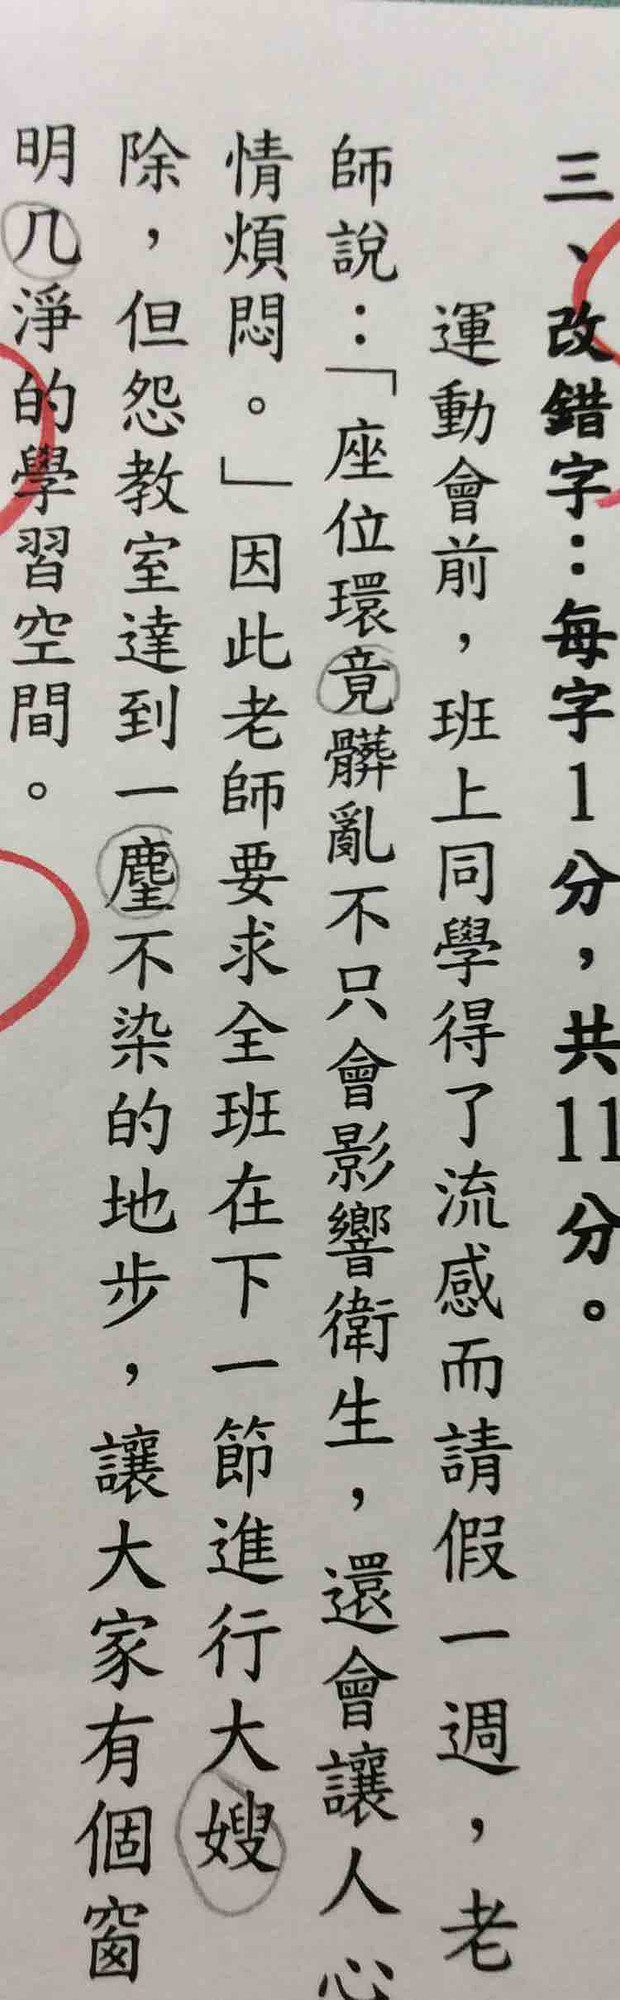 三、改錯字：每字1分，共11分。
運動會前，班上同學得了流感而請假一週，老
師說：「座位環竟髒亂不只會影響衛生，還會讓人心
情煩悶。」因此老師要求全班在下一節進行大嫂
除，但怨教室達到一塵不染的地步，讓大家有個窗
明几淨的學習空間。